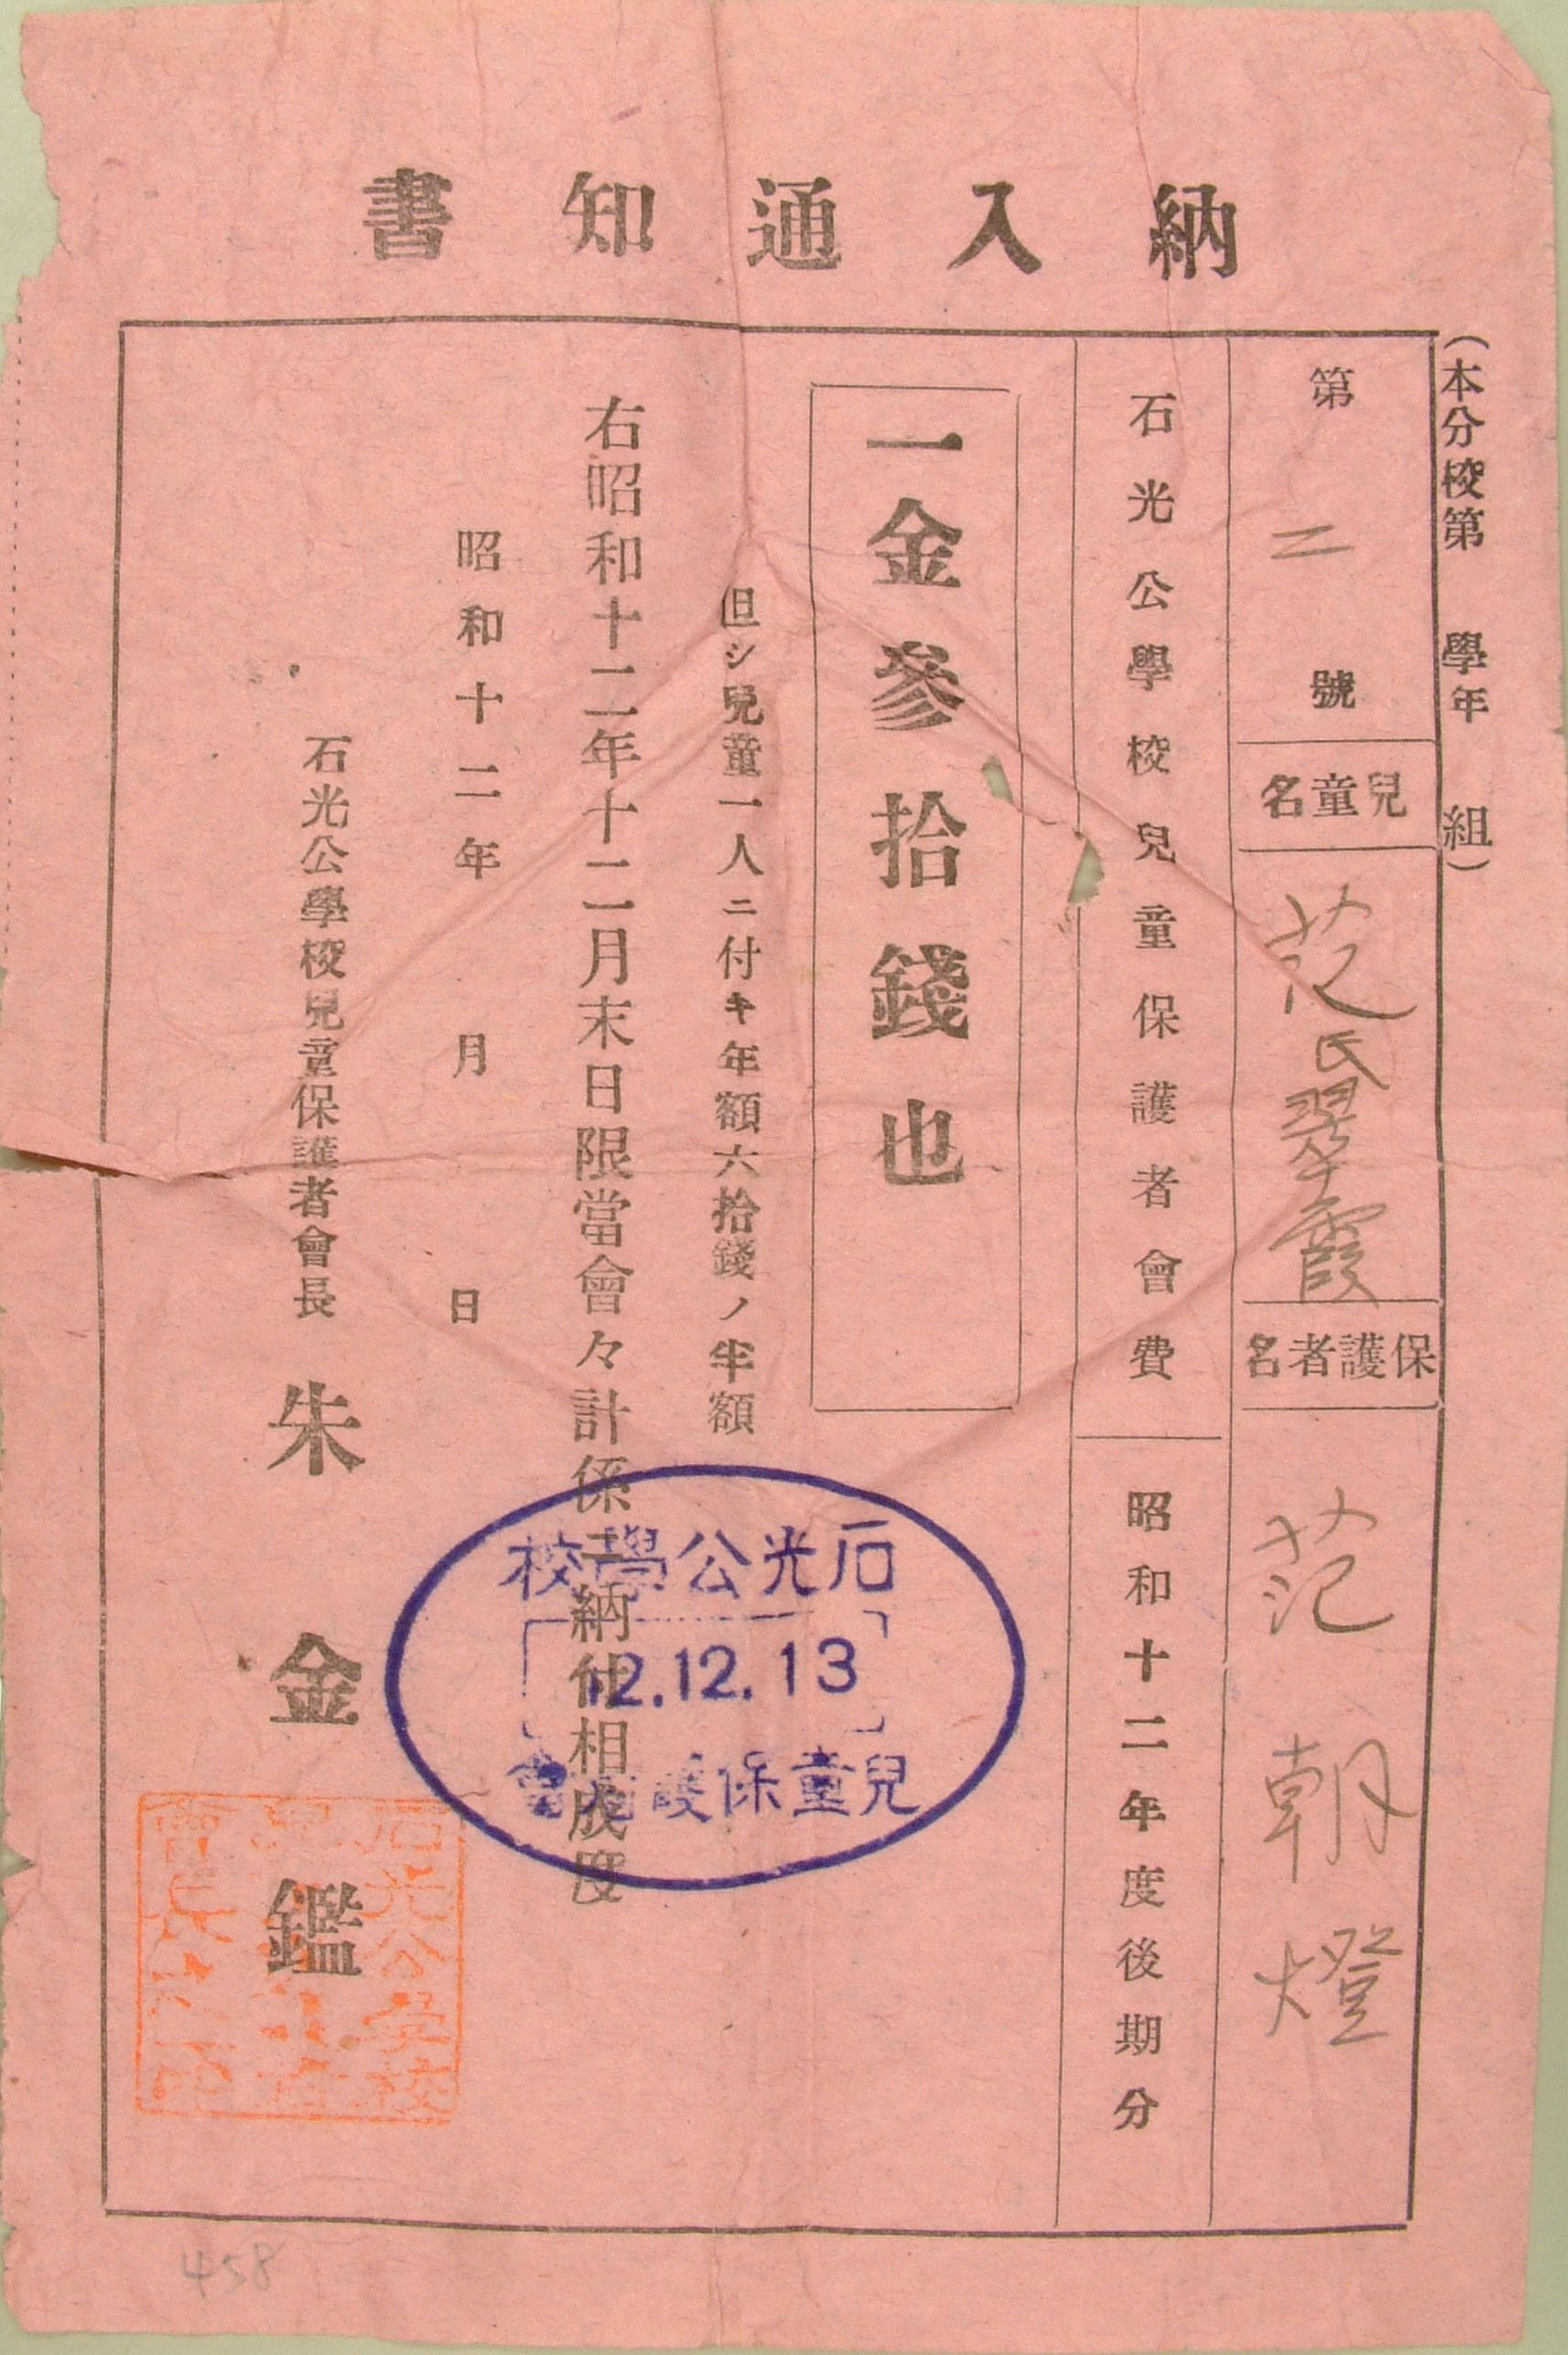 納入通知書
(本分校第 學年 組)
第二號
兒童名
范氏翠霞
保護者名
范朝燈
石光公學校兒童保護者會費
昭和十二年度後期分
一金參拾錢也
但シ兒童一人ニ付キ年額六拾錢ノ半額
右昭和十二年十二月末日限當會々計係ニ納付相成度
昭和十二年 月 日
石光公學校兒童保護者會長 朱金鑑
石光公學校
12.12.13
兒童保護者會
458